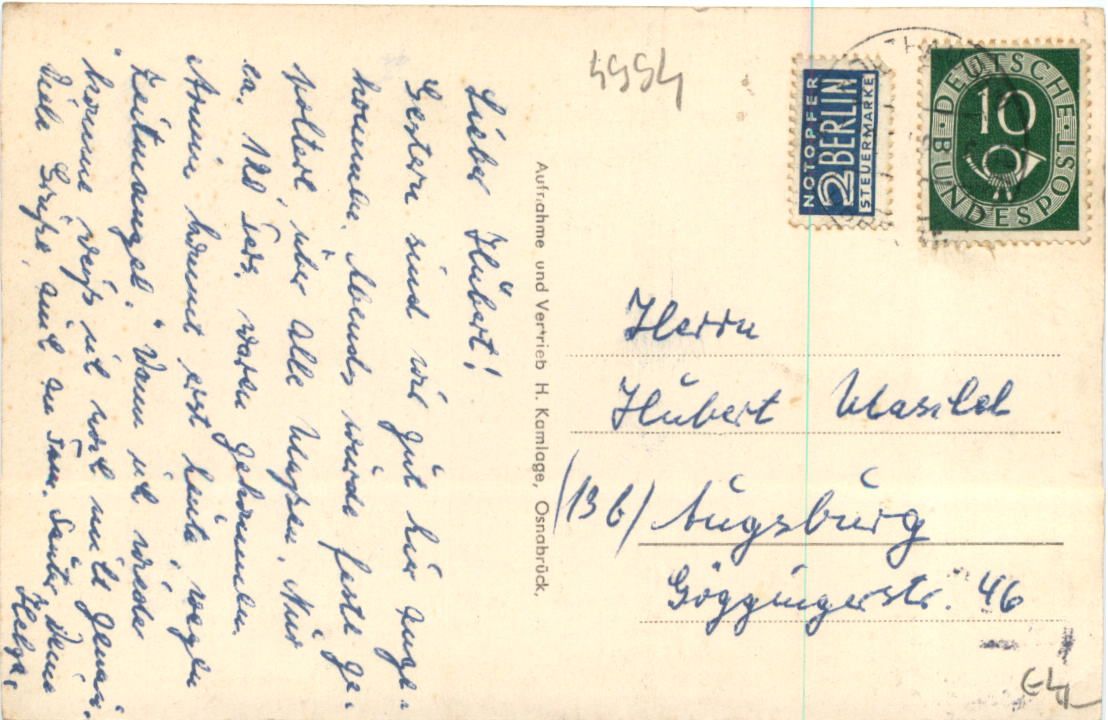 Lieber Hubert!
Gestern sind wir gut hier ange-
kommen. Abends wurde feste ge-
poltert, über alle Maßen. Nur
ca. 120 Pers. waren gekommen.
Armin kommt erst heute, wegen
Zeitmangel. Wann ich wieder
komme weiß ich noch nicht genau.
Viele Grüße, auch an Fam. Deine
Helga.
Aufnahme und Vertrieb H. Kamlage, Osnabrück.
4954
NOTOPFER
2 BERLIN
STEUERMARKE
DEUTSCHE BUNDESPOST
10
Herrn
Hubert
(13b) Augsburg
Göggingerstr. 46